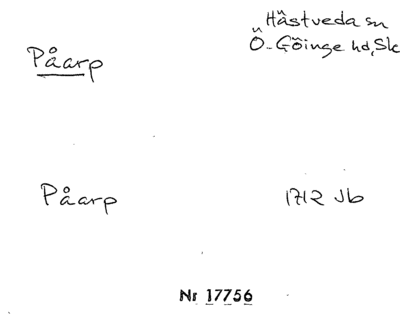 Hästveda sn
Påarp
Ö. Göinge hd, Sk
Påarp
1712 Jb
Nr 17756